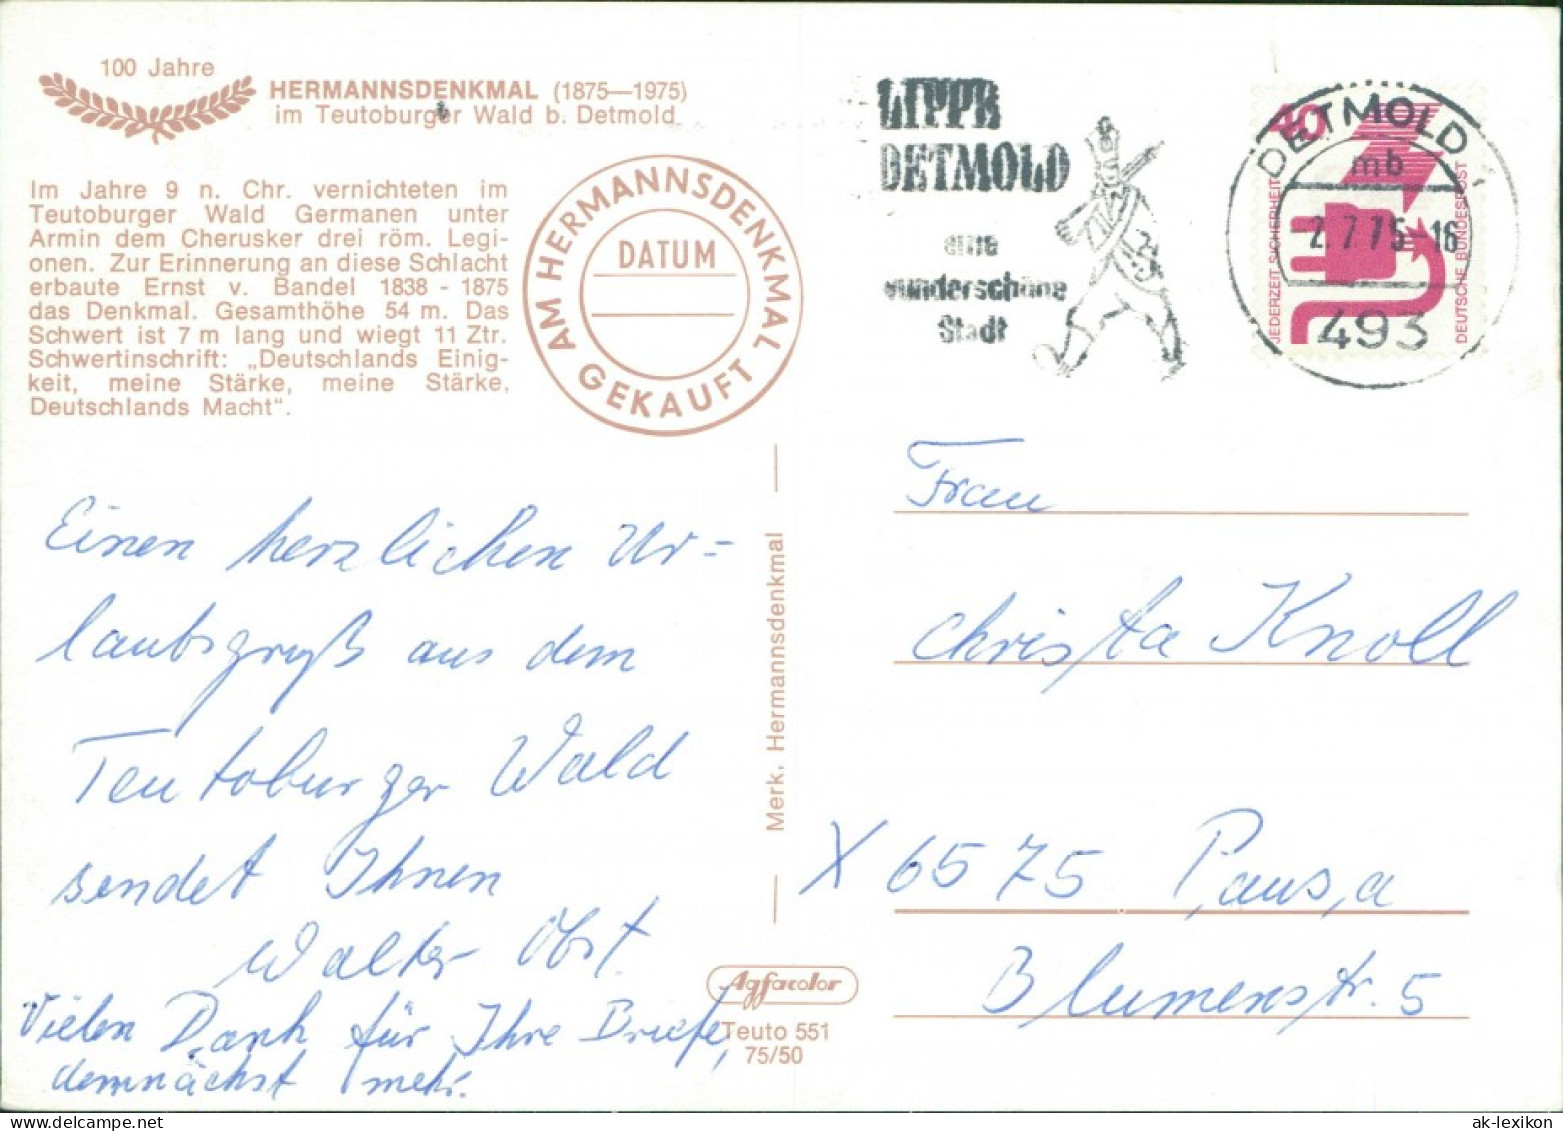 100 Jahre
HERMANNSDENKMAL (1875—1975)
im Teutoburger Wald b. Detmold
Im Jahre 9 n. Chr. vernichteten im
Teutoburger Wald Germanen unter
Armin dem Cherusker drei röm. Legi-
onen. Zur Erinnerung an diese Schlacht
erbaute Ernst v. Bandel 1838 - 1875
das Denkmal. Gesamthöhe 54 m. Das
Schwert ist 7 m lang und wiegt 11 Ztr.
Schwertinschrift: „Deutschlands Einig-
keit, meine Stärke, meine Stärke,
Deutschlands Macht“.
AM HERMANNSDENKMAL GEKAUFT
DATUM
LIPPE
DETMOLD
eine
wunderschöne
Stadt
DETMOLD 1
mb
2.7.75-16
493
40
JEDERZEIT SICHERHEIT
DEUTSCHE BUNDESPOST
Einen herzlichen Ur=
laubsgruß aus dem
Teutoburger Wald
sendet Ihnen
Walter Obst.
Vielen Dank für Ihre Briefe,
demnächst mehr.
Merk, Hermannsdenkmal
Agfacolor
Teuto 551
75/50
Frau
Christa Knoll
X 6575 Pausa
Blumenstr. 5
ak-lexikon.com